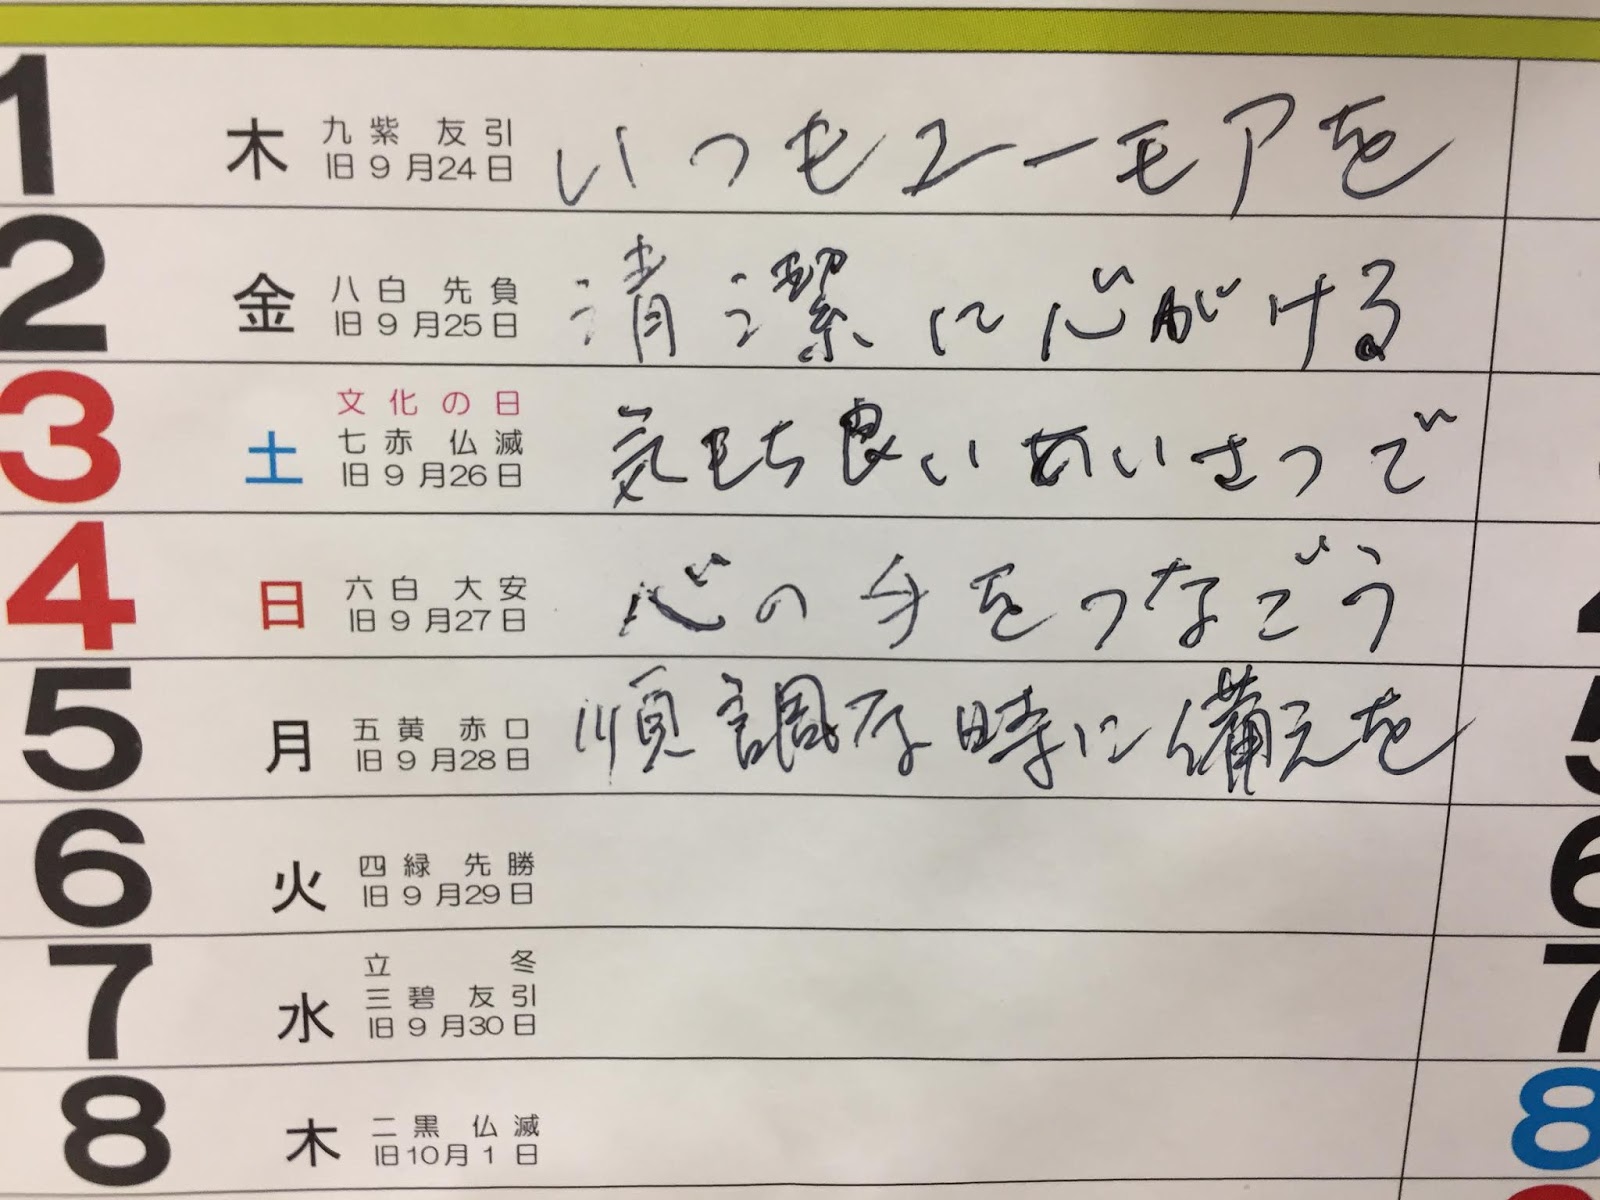 1 木 九紫 友引 いつもユーモアを
旧9月24日
2 金 八白 先負 清潔に心がける
旧9月25日
文化の日
3 土 七赤 仏滅 気もち良いあいさつで
旧9月26日
4 日 六白 大安 心の手をつなごう
旧9月27日
5 月 五黄 赤口 順調な時に備えを
旧9月28日
6 火 四緑 先勝
旧9月29日
立冬
7 水 三碧 友引
旧9月30日
8 木 二黒 仏滅
旧10月1日
5
6
7
8